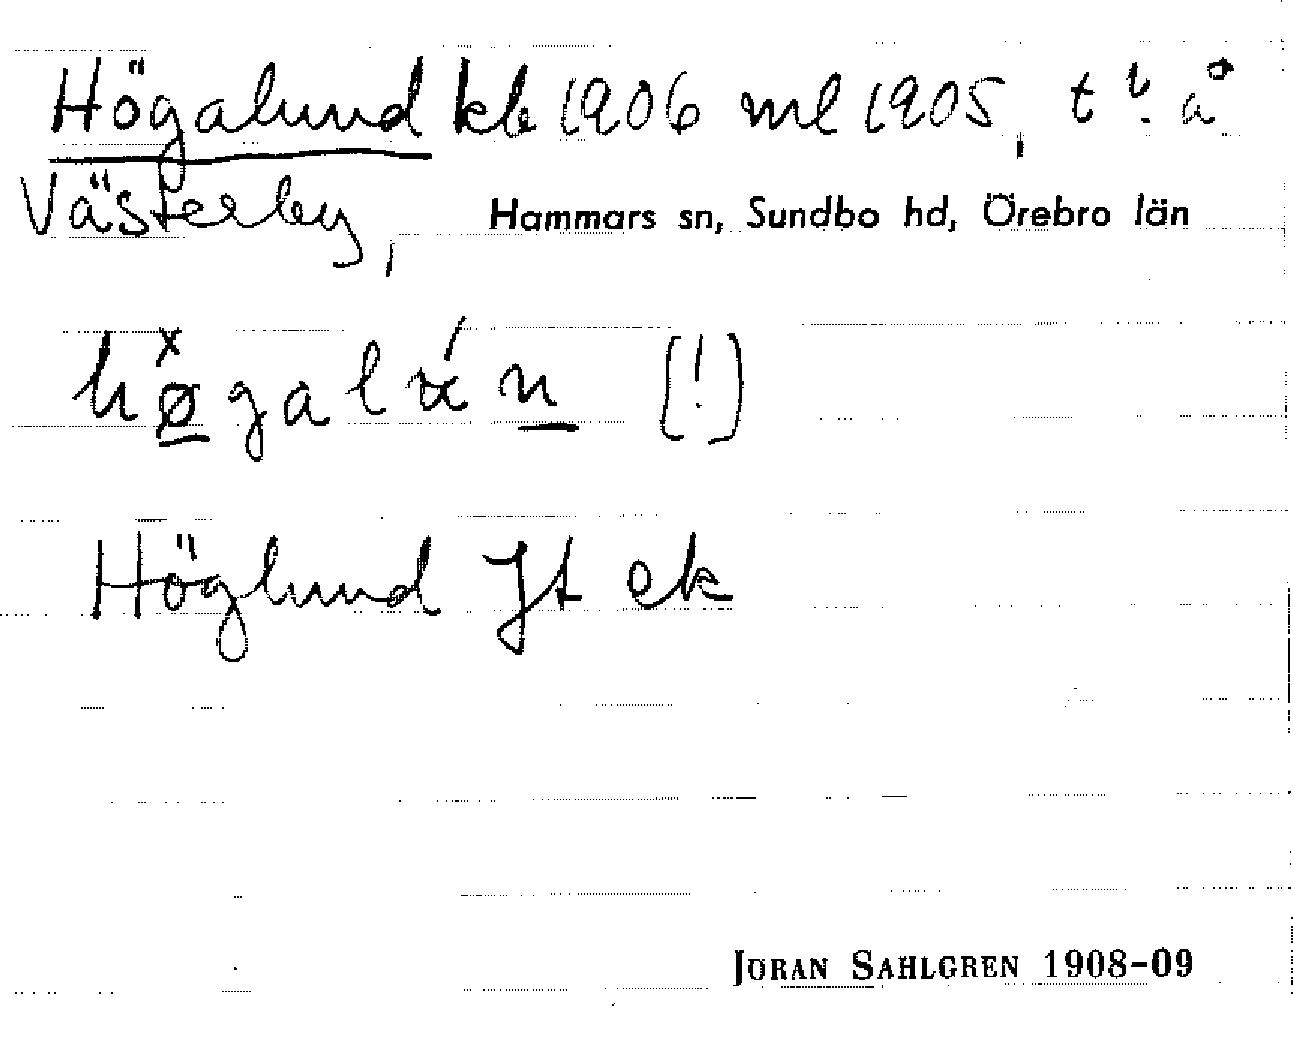 Högalund kb 1906 ml 1905, t v. å
Västerby, Hammars sn, Sundbo hd, Örebro län
høgalún [!]
Höglund Jt ek
JÖRAN SAHLGREN 1908-09